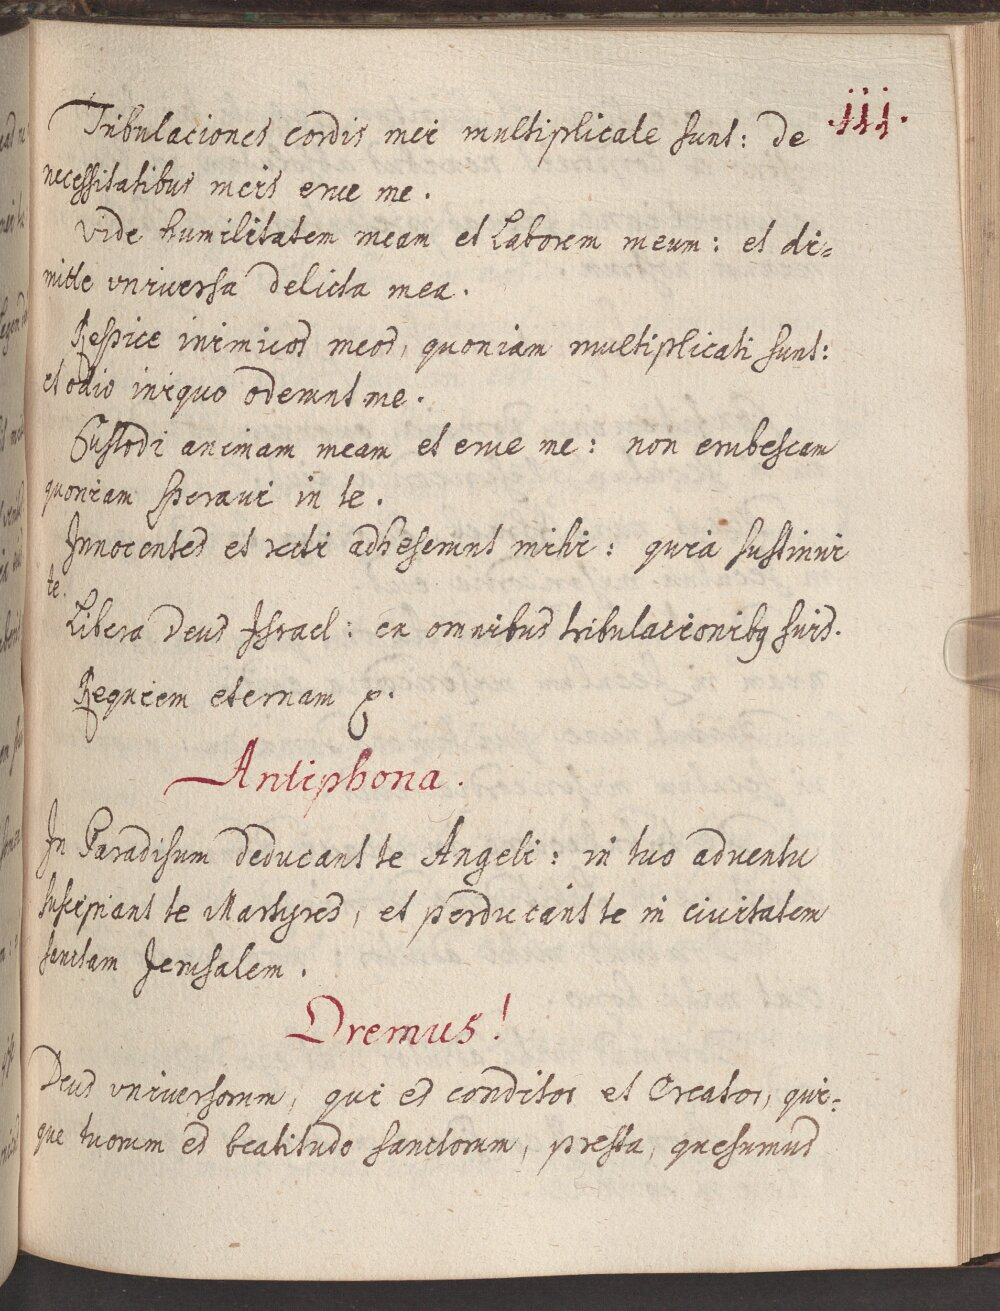 .iii.
Tribulaciones cordis mei multiplicate sunt: de
necessitatibus meis erue me.
Vide humilitatem meam et Laborem meum: et di=
mitte vniuersa delicta mea.
Respice inimicos meos, quoniam multiplicati sunt:
et odio iniquo oderunt me.
Custodi animam meam et erue me: non erubescam
quoniam speraui in te.
Innocentes et recti adheserunt mihi: quia sustinui
te.
Libera Deus Israel: ex omnibus tribulationibq suis.
Requiem eternam &.
Antiphona.
In Paradisum deducant te Angeli: in tuo aduentu
suscipiant te Martyres, et perducant te in ciuitatem
sanctam Jerusalem.
Oremus!
Deus vniuersorum, qui es conditor et Creator, qui=
que tuorum es beatitudo sanctorum, presta, quesumus